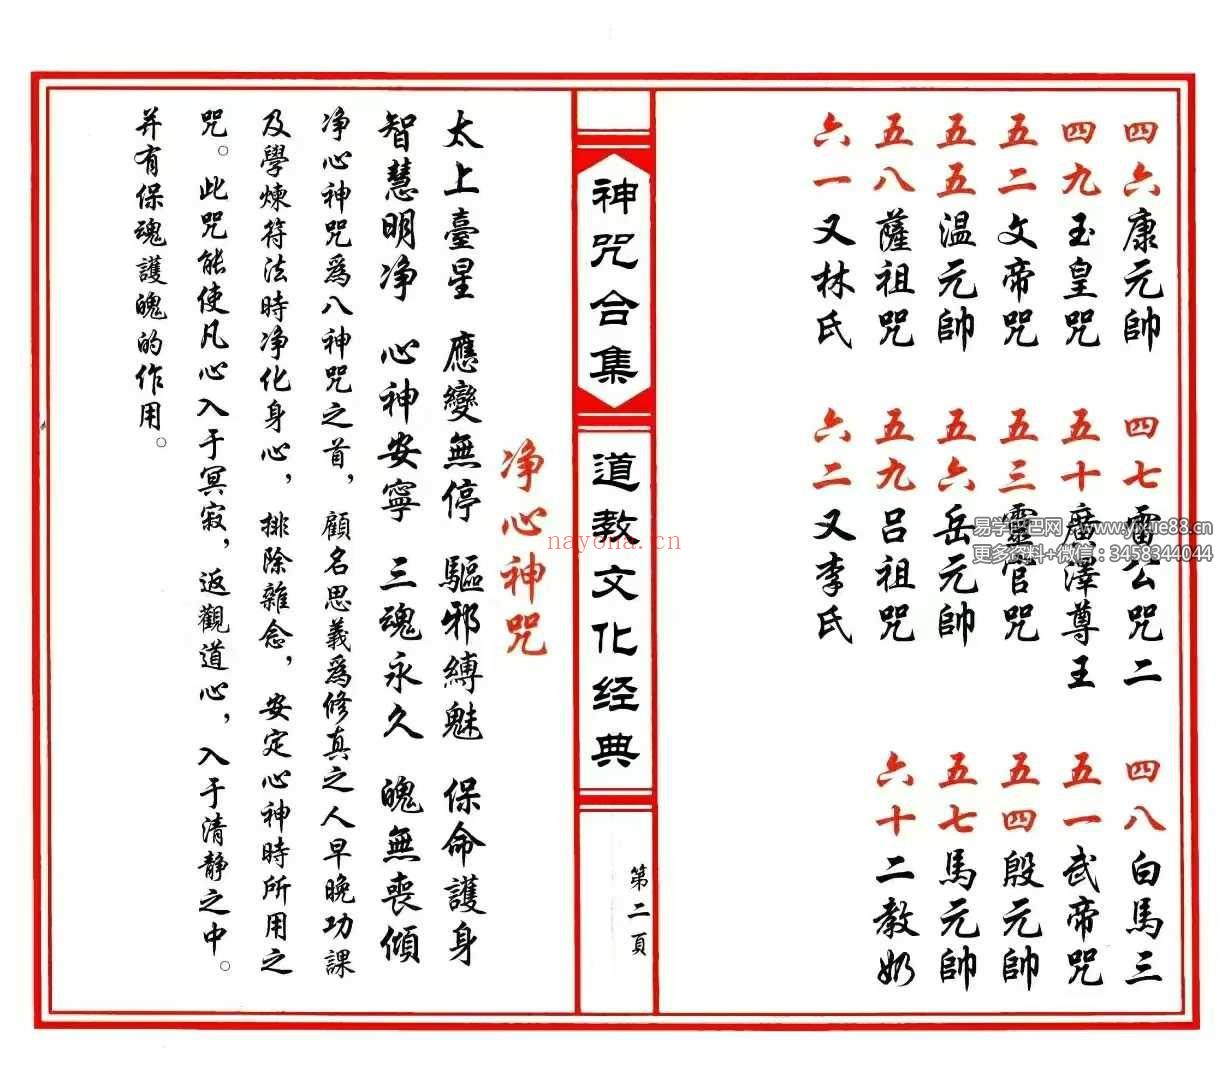 四六康元帥 四七雷公咒二 四八白馬三
四九玉皇咒 五十廣澤尊王 五一武帝咒
五二文帝咒 五三靈官咒 五四殷元帥
五五温元帥 五六岳元帥 五七馬元帥
五八薩祖咒 五九吕祖咒 六十二教奶
六一又林氏 六二又李氏
神咒合集
道教文化经典
第二頁
净心神咒
太上臺星 應變無停 驅邪縛魅 保命護身
智慧明净 心神安寧 三魂永久 魄無喪傾
净心神咒爲八神咒之首，顧名思義爲修真之人早晚功課
及學煉符法時净化身心，排除雜念，安定心神時所用之
咒。此咒能使凡心入于冥寂，返觀道心，入于清静之中。
并有保魂護魄的作用。
nayona.cn
易学吧巴网 www.yixue88.cn
更多资料+微信：3458344044